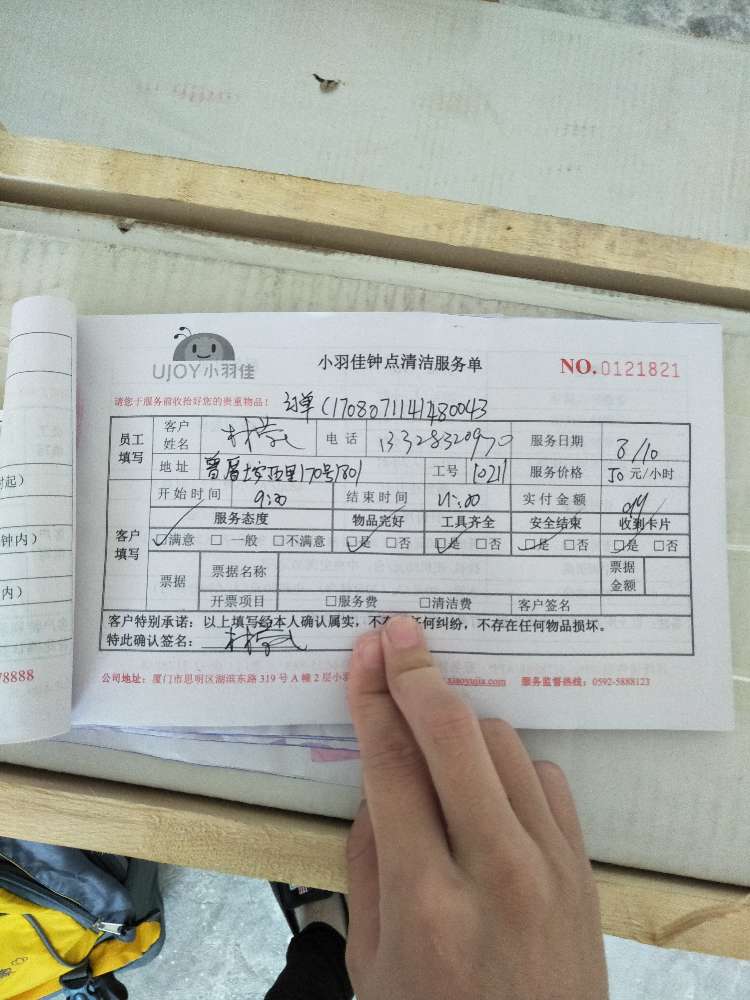 UJOY小羽佳
小羽佳钟点清洁服务单
NO.0121821
请您于服务前收拾好您的贵重物品！ 订单C1708071141480043
员工填写 客户姓名 电话 13328320970 服务日期 8/10
地址 170号1801 工号 10211 服务价格 50元/小时
开始时间 9:00 结束时间 实付金额
客户填写 服务态度 物品完好 工具齐全 安全结束 收到卡片
☑满意 □ 一般 □不满意 ☑是 □否 ☑是 □否 ☑是 □否 ☑是 □否
票据 票据名称 票据金额
开票项目 □服务费 □清洁费 客户签名
客户特别承诺：以上填写经本人确认属实，不存 任何纠纷，不存在任何物品损坏。
特此确认签名：
公司地址：厦门市思明区湖滨东路 319 号 A 幢 2 层小羽 .xiaoyujia.com 服务监督热线：0592-5888123
时起）
钟内）
内）
78888